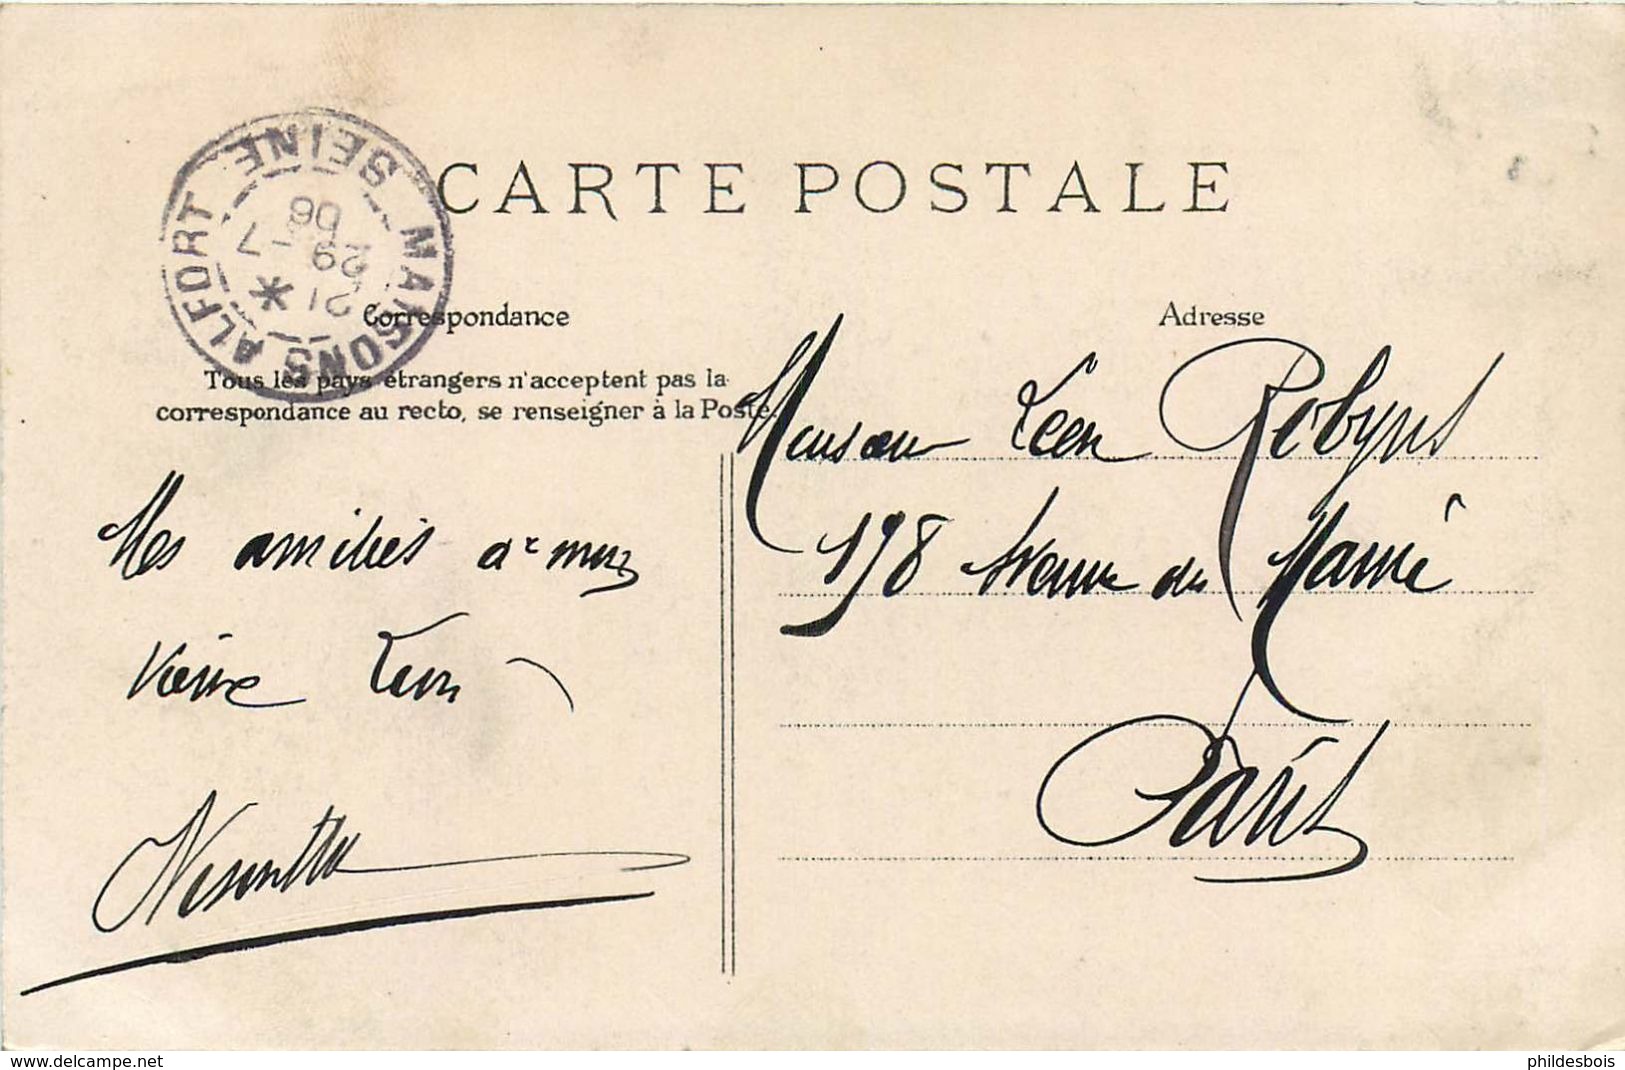 CARTE POSTALE
MAISONS ALFORT SEINE
21 *
29 -7
06
Correspondance
Tous les pays étrangers n'acceptent pas la
correspondance au recto, se renseigner à la Poste.
Mes amitiés à mon
Léon
Adresse
Monsieur Léon Robyns
198 Avenue du Maine
Paris
www.delcampe.net
phildesbois